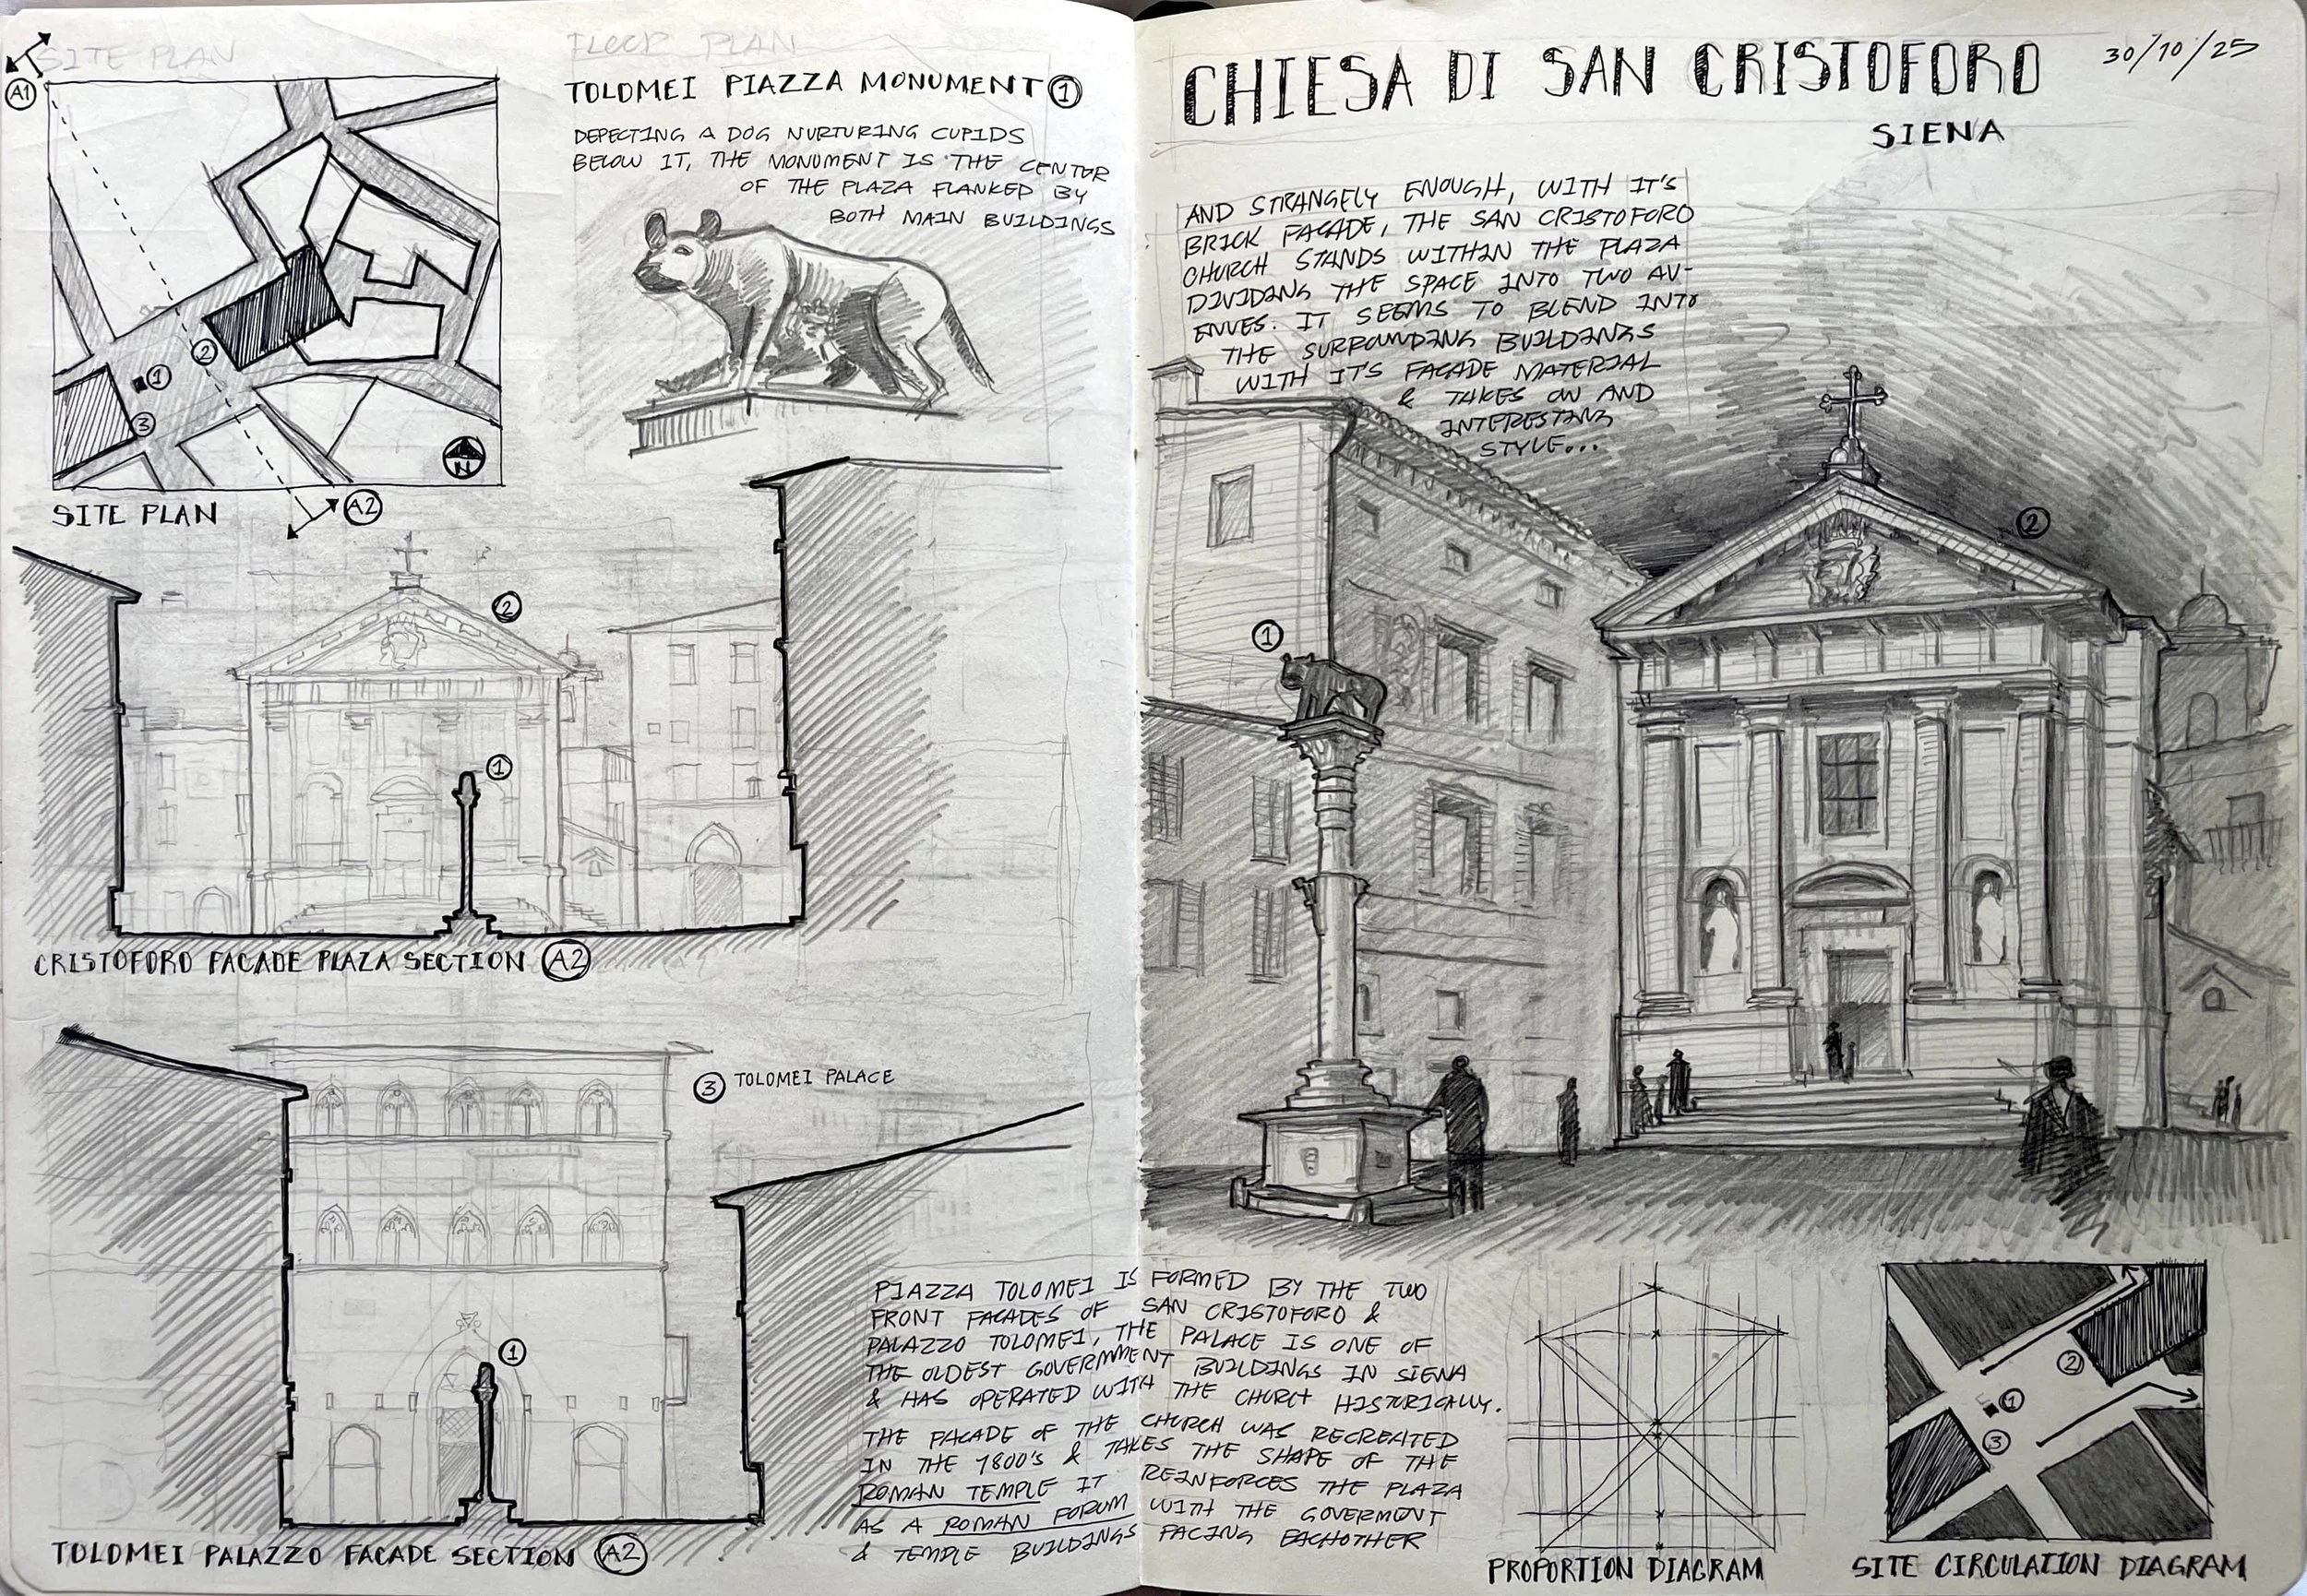 SITE PLAN
FLOOR PLAN
A1
TOLOMEI PIAZZA MONUMENT 1
DEPECTING A DOG NURTURING CUPIDS
BELOW IT, THE MONUMENT IS THE CENTER
OF THE PLAZA FLANKED BY
BOTH MAIN BUILDINGS
2
1
3
N
SITE PLAN
A2
2
1
CRISTOFORO FACADE PLAZA SECTION A2
3 TOLOMEI PALACE
1
TOLOMEI PALAZZO FACADE SECTION A2
CHIESA DI SAN CRISTOFORO
30/10/25
SIENA
AND STRANGELY ENOUGH, WITH IT'S
BRICK FACADE, THE SAN CRISTOFORO
CHURCH STANDS WITHIN THE PLAZA
DIVIDING THE SPACE INTO TWO AV-
ENUES. IT SEEMS TO BLEND INTO
THE SURROUNDING BUILDINGS
WITH IT'S FACADE MATERIAL
& TAKES ON AND
INTERESTING
STYLE...
2
1
PIAZZA TOLOMEI IS FORMED BY THE TWO
FRONT FACADES OF SAN CRISTOFORO &
PALAZZO TOLOMEI, THE PALACE IS ONE OF
THE OLDEST GOVERNMENT BUILDINGS IN SIENA
& HAS OPERATED WITH THE CHURCH HISTORICALLY.
THE FACADE OF THE CHURCH WAS RECREATED
IN THE 1800'S & TAKES THE SHAPE OF THE
ROMAN TEMPLE IT REINFORCES THE PLAZA
AS A ROMAN FORUM WITH THE GOVERMENT
& TEMPLE BUILDINGS FACING EACHOTHER
PROPORTION DIAGRAM
2
1
3
SITE CIRCULATION DIAGRAM